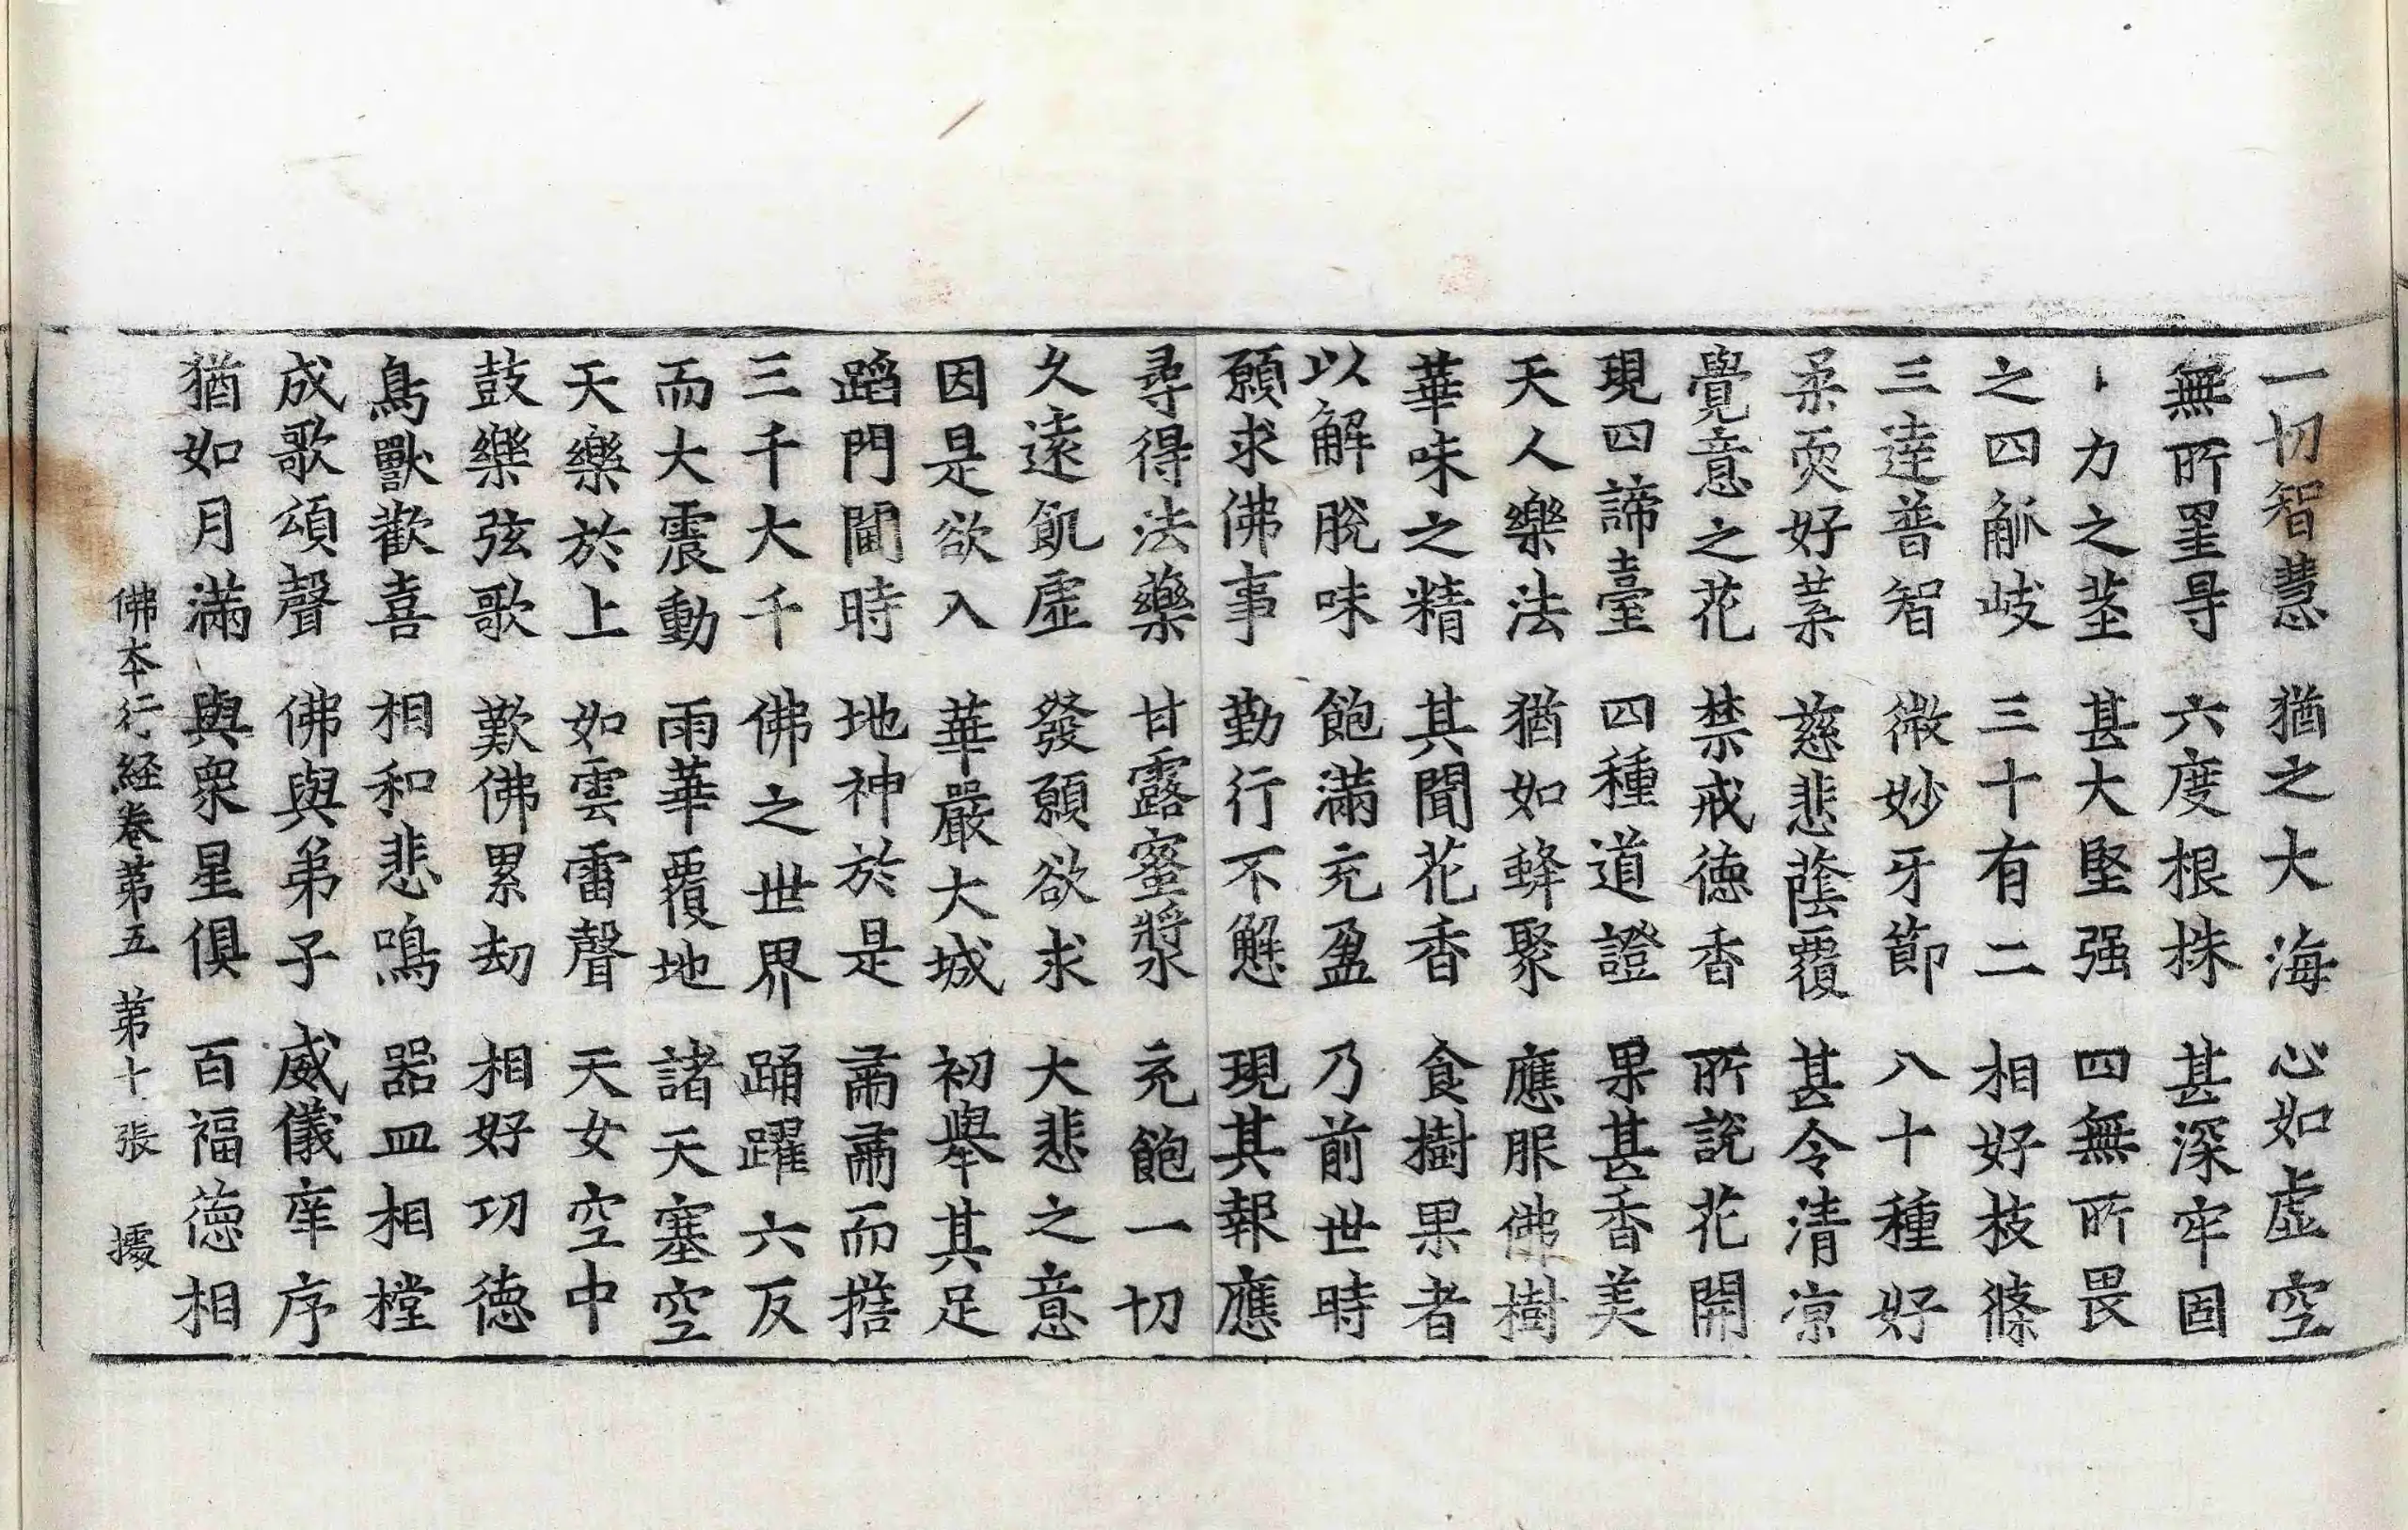 一切智慧 猶之大海 心如虛空
無所罣㝵 六度根株 甚深牢固
十力之莖 甚大堅强 四無所畏
之四觚岐 三十有二 相好枝條
三達普智 微妙牙節 八十種好
柔耎好葉 慈悲蔭覆 甚令清涼
覺意之花 禁戒德香 所說花開
現四諦臺 四種道證 果甚香美
天人樂法 猶如蜂聚 應服佛樹
華味之精 其聞花香 食樹果者
以解脫味 飽滿充盈 乃前世時
願求佛事 勤行不懈 現其報應
尋得法藥 甘露蜜漿 充飽一切
久遠飢虛 發願欲求 大悲之意
因是欲入 華嚴大城 初舉其足
蹈門閫時 地神於是 肅肅而搖
三千大千 佛之世界 踊躍六反
而大震動 雨華覆地 諸天塞空
天樂於上 如雲雷聲 天女空中
鼓樂弦歌 歎佛累劫 相好功德
鳥獸歡喜 相和悲鳴 器皿相樘
成歌頌聲 佛與弟子 威儀庠序
猶如月滿 與衆星俱 百福德相
佛本行経卷第五 第十張 㩀